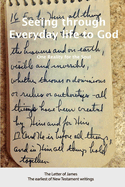 Seeing through
Everyday life to God
the heavens and on earth,
visible and invisible,
whether thrones or dominions
or rulers or authorities - all
things have been created
by Him and for Him
He is before all
things, and in Him all things hold
together.
The Letter of James
The earliest of New Testament writings